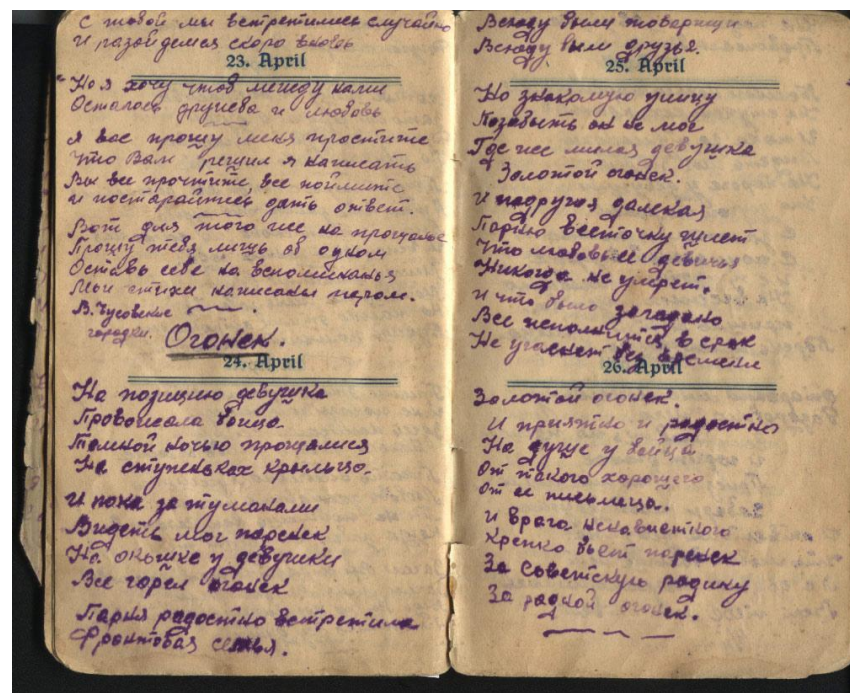 С тобой мы встретились случайно
И разойдемся скоро вновь
23. April
Но я хочу чтоб между нами
Осталась дружба и любовь
Я вас прошу меня простите
Что Вам решил я написать
Вы все прочтите, все поймите
и постарайтесь дать ответ.
Вот для того же на прощанье
Прошу тебя лишь об одном
Оставь себе на вспоминанья
Мои стихи написаны пером.
В. Чусовские
городки.
Огонек.
24. April
На позицию девушка
Провожала бойца.
Темной ночью прощалися
На ступеньках крыльца.
И пока за туманами
Видеть мог паренек
На окошке у девушки
Все горел огонек
Парня радостно встретила
Фронтовая семья.
Всюду были товарищи
Всюду были друзья.
25. April
Но знакомую улицу
Позабыть он не мог
Где же милая девушка
Золотой огонек.
И подруга далекая
Парню весточку шлет
Что любовь ее девичья
Никогда не умрет.
И что было загадано
Все исполнится в срок
Не угаснет без времени
26. April
Золотой огонек.
И приятно и радостно
На душе у бойца
От такого хорошего
От ее письмеца.
И врага ненавистного
Крепко бьет паренек
За советскую родину
За родной огонек.